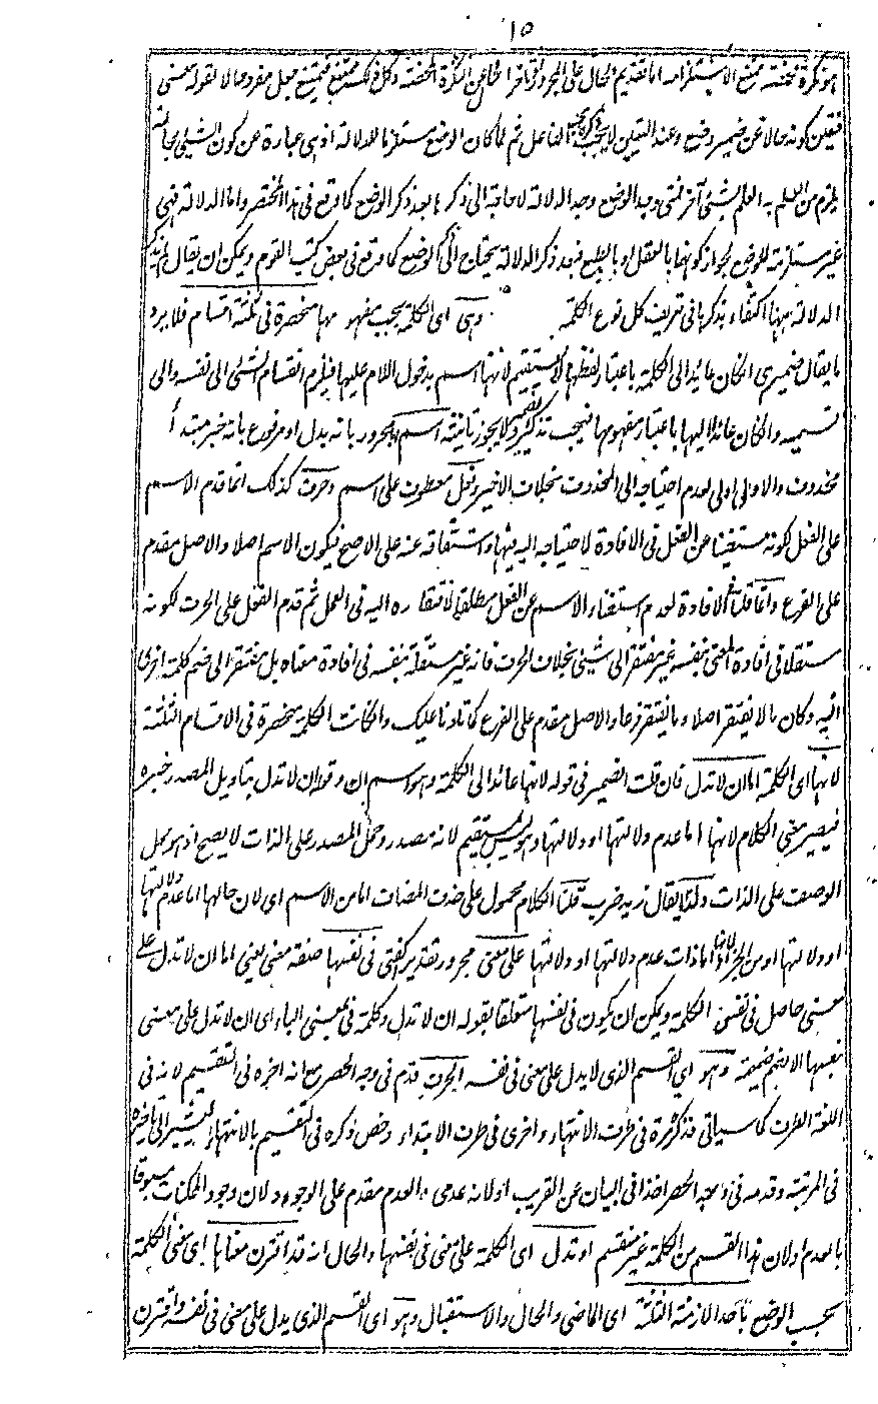 ١٥
هو نكرة محضة ممتنع الاستلزامه اما تقديم الحال على المجرور او تاخر الحال عن النكرة المحضة وكل ذلك ممتنع فيمتنع جعل مفرد حالا لقوله معنى
فتعين كونه حالا عن ضمير وضع وعند التعيين لا يجب الفاعل ثم لما كان الوضع مستلزما للدلالة اذ هى عبارة عن كون الشئ بحالة
يلزم من العلم به العلم بشئ آخر فمتى وجد الوضع وجد الدلالة لا حاجة الى ذكرها بعد ذكر الوضع كما وقع فى هذا المختصر واما الدلالة فهى
غير مستلزمة للوضع لجواز كونها بالعقل او بالطبع فبعد ذكر الدلالة يحتاج الى الوضع كما وقع فى بعض كتب القوم ويمكن ان يقال لم يذكر
الدلالة ههنا اكتفاء بذكرها فى تعريف كل نوع الكلمة وهى اى الكلمة بحسب مفهومها منحصرة فى ثلثة اقسام فلا يرد
ما يقال ضمير هى ان كان عائدا الى الكلمة باعتبار لفظها لا يستقيم لانها اسم بدخول اللام عليها فيلزم انقسام الشئ الى نفسه والى
قسيميه وان كان عائدا اليها باعتبار مفهومها فيجب تذكير الضمير ولا يجوز تانيثه اسم بالمجرور بانه بدل او مرفوع بانه خبر مبتدأ
محذوف والاولى اولى لعدم احتياجه الى المحذوف بخلاف الاخير وفعل معطوف على اسم وحرف كذلك انما قدم الاسم
على الفعل لكونه مستغنيا عن الفعل فى الافادة لاحتياجه اليه فيها واشتقاقه عنه على الاصح فيكون الاسم اصلا والاصل مقدم
على الفرع وانما قلنا فى الافادة لعدم استغناء الاسم عن الفعل مطلقا لافتقاره اليه فى العمل ثم قدم الفعل على الحرف لكونه
مستقلا فى افادة المعنى بنفسه غير مفتقر الى شئ بخلاف الحرف فانه غير مستقلة بنفسه فى افادة معناه بل مفتقر الى ضم كلمة اخرى
اليه وكان ما لا يفتقر اصلا وما يفتقر فرعا والاصل مقدم على الفرع كما تلونا عليك وانما كانت الكلمة منحصرة فى الاقسام الثلثة
لانها اى الكلمة اما ان لا تدل فان قلت الضمير فى قوله لانها عائد الى الكلمة وهو اسم ان وقوله ان لا تدل بتاويل المصدر خبره
فيصير معنى الكلام لانها اما عدم دلالتها او دلالتها وهو ليس بمستقيم لانه مصدر وحمل المصدر على الذات لا يصح اذ هو حمل
الوصف على الذات ولهذا يقال زيد ضرب قلنا الكلام محمول على حذف المضاف اما من الاسم اى لان حالها اما عدم دلالتها
او دلالتها او من الخبر اى لانها اما ذات عدم دلالتها او دلالتها على معنى مجرور بتقدير كفتى فى نفسها صفة معنى يعنى اما ان لا تدل على
معنى حاصل فى نفس الكلمة ويمكن ان يكون فى نفسها متعلقا بقوله ان لا تدل وكلمة فى بمعنى الباء اى ان لا تدل على معنى
بنفسها الا بضم ضميمة وهو اى القسم الذى لا يدل على معنى فى نفسه الحرف قدم فى وجه الحصر مع انه اخره فى التقسيم لانه فى
اللغة الطرف كما سياتى فذكر مرة فى طرف الانتهاء واخرى فى طرف الابتداء وخص ذكره فى التقسيم بالانتهاء ليشير الى تاخيره
فى المرتبة وقدمه فى وجه الحصر اخذا فى البيان عن القريب او لانه عدمى والعدم مقدم على الوجود ولان وجود الممكنات مسبوقا
بالعدم او لان هذا القسم من الكلمة غير منقسم او تدل اى الكلمة على معنى فى نفسها والحال انه قد اقترن معناها اى معنى الكلمة
بحسب الوضع باحد الازمنة الثلثة اى الماضى والحال والاستقبال وهو اى القسم الذى يدل على معنى فى نفسه واقترن